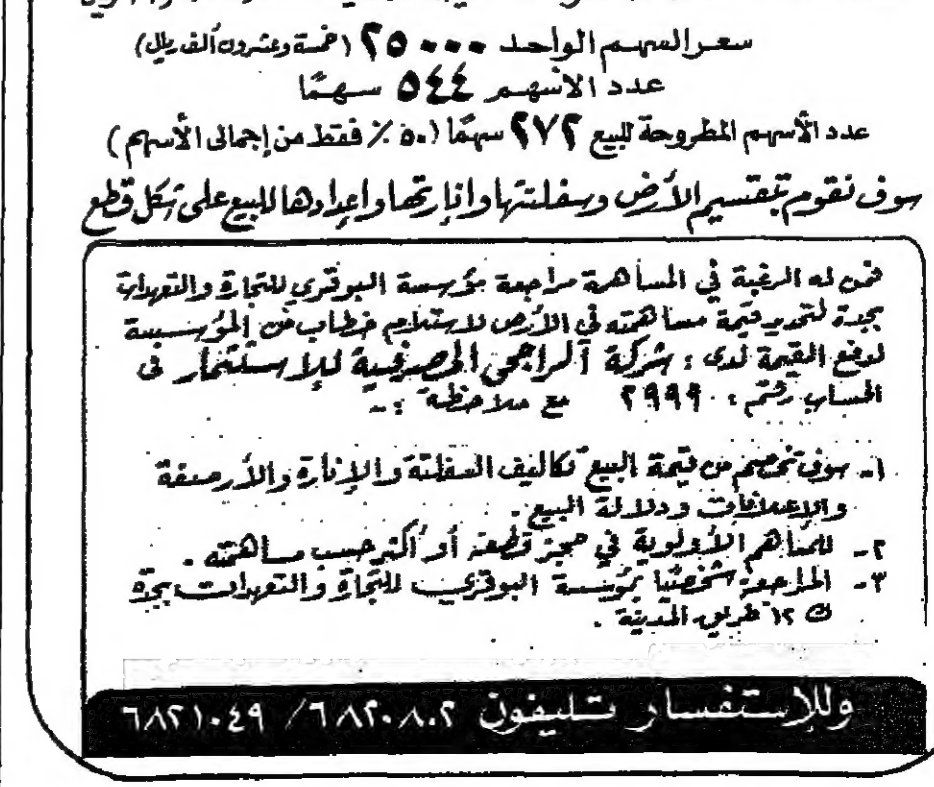 سعر السهم الواحد ٢٥٠٠٠ (خمسة وعشرون ألف ريال)
عدد الاسهم ٥٤٤ سهمًا
عدد الأسهم المطروحة للبيع ٢٧٢ سهمًا (٥٠٪ فقط من إجمالى الأسهم)
سوف نقوم بتقسيم الأرض وسفلتتها وانارتها واعدادها للبيع على شكل قطع
فمن له الرغبة في المساهمة مراجعة مؤسسة البوقري للتجارة والتعهدات
بجدة لتحديد قيمة مساهمته في الأرض لاستلام خطاب من المؤسسة
لدفع القيمة لدى : شركة الراجحى المصرفية للاستثمار فى
الحساب رقم : ٢٩٩٩٠ مع ملاحظة :-
١- سوف تخصم من قيمة البيع تكاليف السفلتة والإنارة والأرصفة
والإعلانات ودلالة البيع .
٢- للمساهم الأولوية في حجز قطعة أو أكثر حسب مساهمته .
٣- المراجعة شخصيًا بمؤسسة البوقري للتجارة والتعهدات بجدة
ك ١٢ طريق المدينة .
وللإستفسار تليفون ٦٨٢٠٨٠٢ / ٦٨٢١٠٤٩